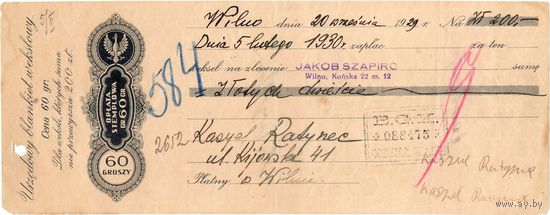 Urzędowy blankiet wekslowy.
Cena 60 gr.
Dla weksli, których suma
nie przewyższa 200 zł.
OPŁATA
STEMPLOWA
GR 60 GR
60
GROSZY
584
2652
Wilno dnia 20 września 1929 r. Na Zł 200,-
Dnia 5 lutego 1930 r. zapłac za ten
weksel na zlecenie JAKOB SZAPIRO sumę
Wilno, Końska 22 m. 12
Złotych dwieście
B.G.K.
088475
Kaspel Ratyniec
ul. Kijowska 41
Płatny w Wilnie
www.ay.by